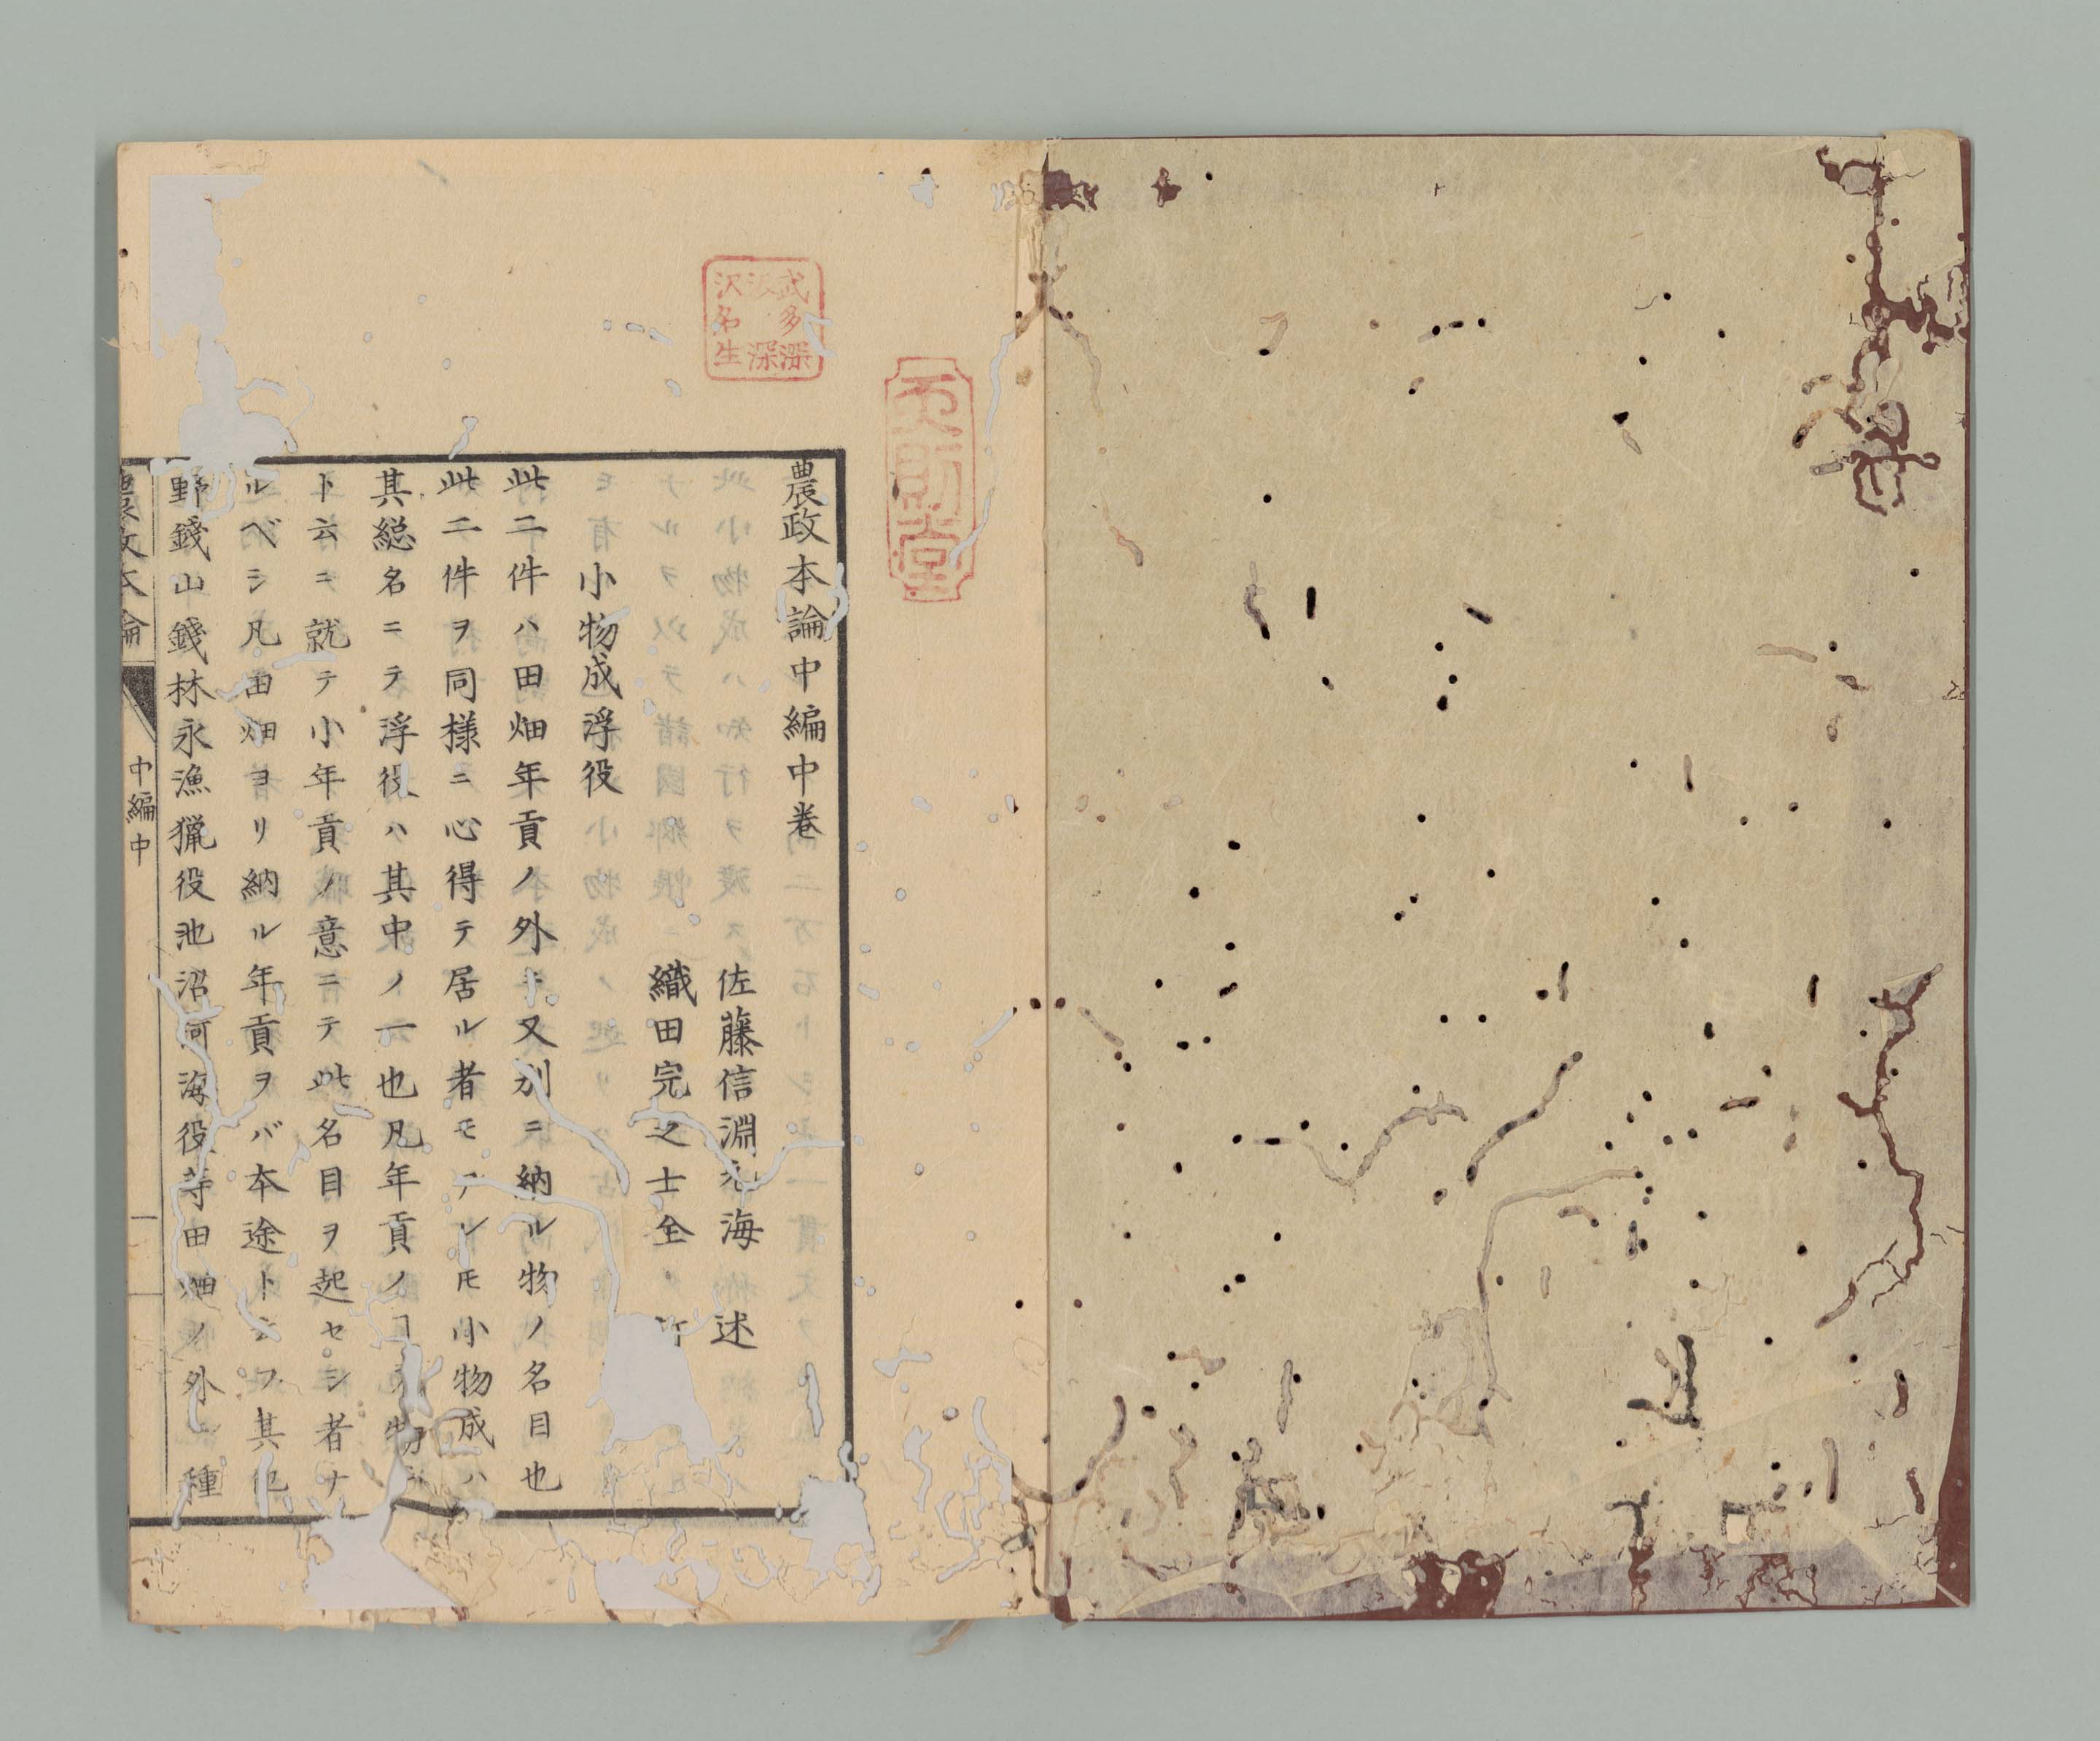 農政本論中編中巻
佐藤信淵元海 述
織田完之士全
小物成浮役
此二件ハ田畑年貢ノ外ニ又別ニ納ル物ノ名目也
此二件ヲ同様ニ心得テ居ル者モアレ𪜈小物成ハ
其総名ニテ浮役ハ其中ノ一也凡年貢ノ
ト云ニ就テ小年貢ノ意ニテ此名目ヲ起セシ者ナ
ルベシ凡田畑ヨリ納ル年貢ヲバ本途ト云フ其他
野錢山錢林永漁猟役池沼河海役等田畑ノ外 種
農政本論
中編中
一